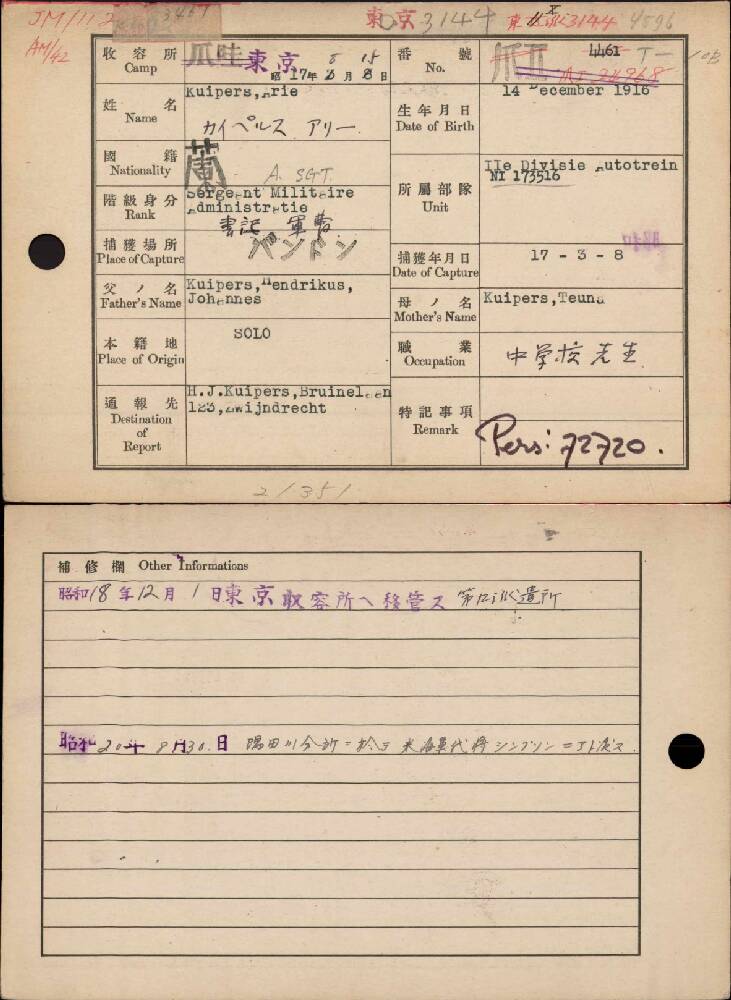 JM/11-2
AM/42
東京 3144
3144
4596
収容所 Camp
爪哇
東京
昭17年 8月 15日
8
番號 No.
4461
姓名 Name
Kuipers, Arie
カイペルス アリー
生年月日 Date of Birth
14 December 1916
國籍 Nationality
蘭
A. SGT.
階級身分 Rank
Sergeant Militaire
Administratie
書記 軍曹
所屬部隊 Unit
IIe Divisie Autotrein
NI 173516
捕獲場所 Place of Capture
バンドン
捕獲年月日 Date of Capture
17 - 3 - 8
父ノ名 Father's Name
Kuipers, Hendrikus,
Johannes
母ノ名 Mother's Name
Kuipers, Teuna
本籍地 Place of Origin
SOLO
職業 Occupation
中学校 先生
通報先 Destination of Report
H.J.Kuipers, Bruinelaan
123, Zwijndrecht
特記事項 Remark
Pers: 72720.
21351
補修欄 Other Informations
昭和18年12月1日東京収容所ヘ移管ス
昭和20年8月30日 隅田川分所ニ於テ米海軍代将シンプソンニ引渡ス